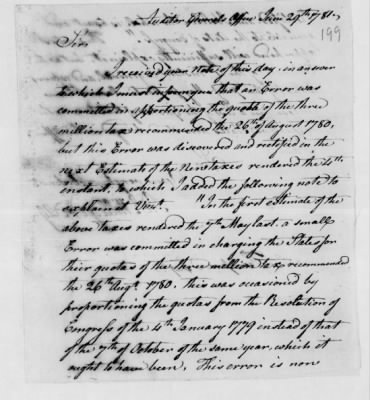 Auditor Generals Office June 29th 1781.
199
Sir
I received your Note of this day, in answer
to which I must inform you that an Error was
committed in apportioning the quota of the three
million tax recommended the 26th of August 1780,
but this Error was discovered and rectified in the
next Estimate of the New taxes rendered the 4th
instant, to which I added the following note to
explain it Vizt. "In the first estimate of the
above taxes rendered the 7th May last. a small
Error was committed in charging the States for
their quotas of the three million tax recommended
the 26th Augt. 1780. this was occasioned by
proportioning the quotas from the Resolution of
Congress of the 4th January 1779 instead of that
of the 7th of October of the same year, which it
ought to have been, This error is now